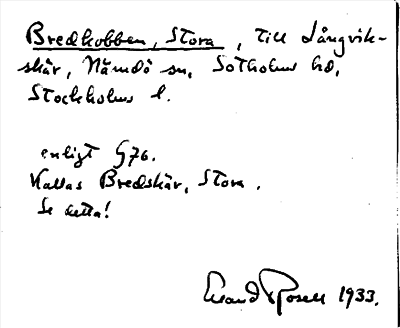 Bredkobben, Stora, till Långvik-
skär, Nämdö sn, Sotholms hd,
Stockholms l.
enligt G76.
Kallas Bredskär, Stora.
Se detta!
Evand Rosell 1933.